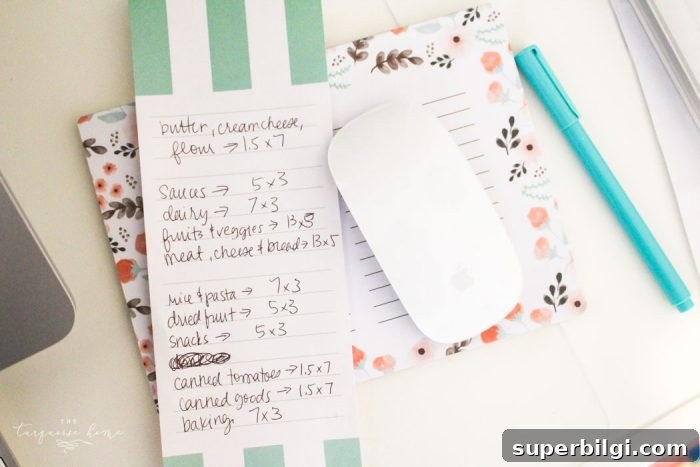 butter, cream cheese,
flour → 1.5 x 7
sauces → 5 x 3
dairy → 7 x 3
fruits & veggies → 13 x 5
meat, cheese & bread → 13 x 5
rice & pasta → 7 x 3
dried fruit → 5 x 3
snacks → 5 x 3
canned tomatoes → 1.5 x 7
canned goods → 1.5 x 7
baking, 7 x 3
THE
turquoise home
superbilgi.com